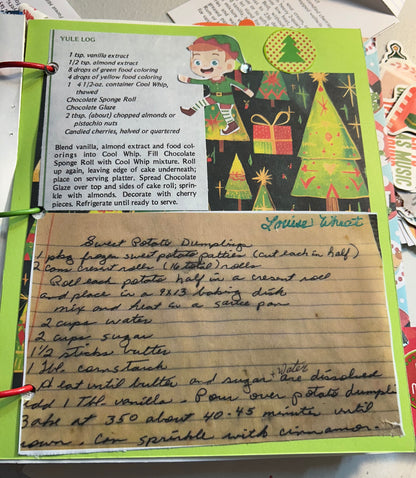 YULE LOG
1 tsp. vanilla extract
1/2 tsp. almond extract
8 drops of green food coloring
4 drops of yellow food coloring
1 4 1/2-oz. container Cool Whip,
thawed
Chocolate Sponge Roll
Chocolate Glaze
2 tbsp. (about) chopped almonds or
pistachio nuts
Candied cherries, halved or quartered
Blend vanilla, almond extract and food col-
orings into Cool Whip. Fill Chocolate
Sponge Roll with Cool Whip mixture. Roll
up again, leaving edge of cake underneath;
place on serving platter. Spread Chocolate
Glaze over top and sides of cake roll; sprin-
kle with almonds. Decorate with cherry
pieces. Refrigerate until ready to serve.
Louise Wheat
Sweet Potato Dumplings
1 pkg frozen sweet potato patties (cut each in half)
2 cans cresent rolls (16 total) rolls
Roll each potato half in a cresent roll
and place in a 9x13 baking dish
mix and heat in a sauce pan
2 cups water
2 cups sugar
1 1/2 sticks butter
1 Tbl. cornstarch
Heat until butter and sugar + water are dissolved
add 1 Tbl. vanilla. Pour over potato dumpli
Bake at 350 about 40-45 minutes until
rown. Can sprinkle with cinnamon.
MUSIC